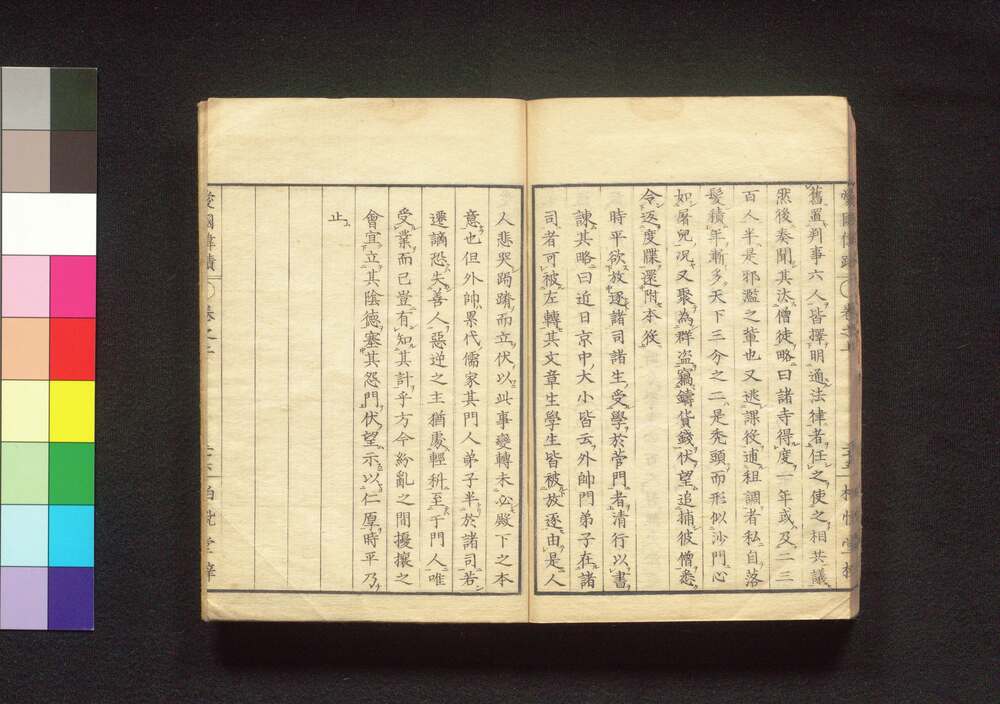 舊置判事六人皆擇明通法律者任之使之相共議
然後奏聞其汰僧徒略曰諸寺得度一年或及二三
百人半是邪濫之輩也又逃課役逋租調者私自落
髮積年漸多天下三分之二是禿頭而形似沙門心
如屠兒況又聚為群盜竊鑄貨錢伏望追捕彼僧悉
令返度牒還附本役
時平欲放逐諸司諸生受學於菅門者清行以書
諫其略曰近日京中大小皆云外帥門弟子在諸
司者可被左轉其文章生學生皆被放逐由是人
人悲哭跼蹐而立伏以此事變轉未必殿下之本
意也但外帥累代儒家其門人弟子半於諸司若
遷謫恐失善人惡逆之主猶處輕科至于門人唯
受業而已豈有知其計乎方今紛亂之間擾攘之
會宜立其陰德塞其怨門伏望示以仁厚時平乃
止